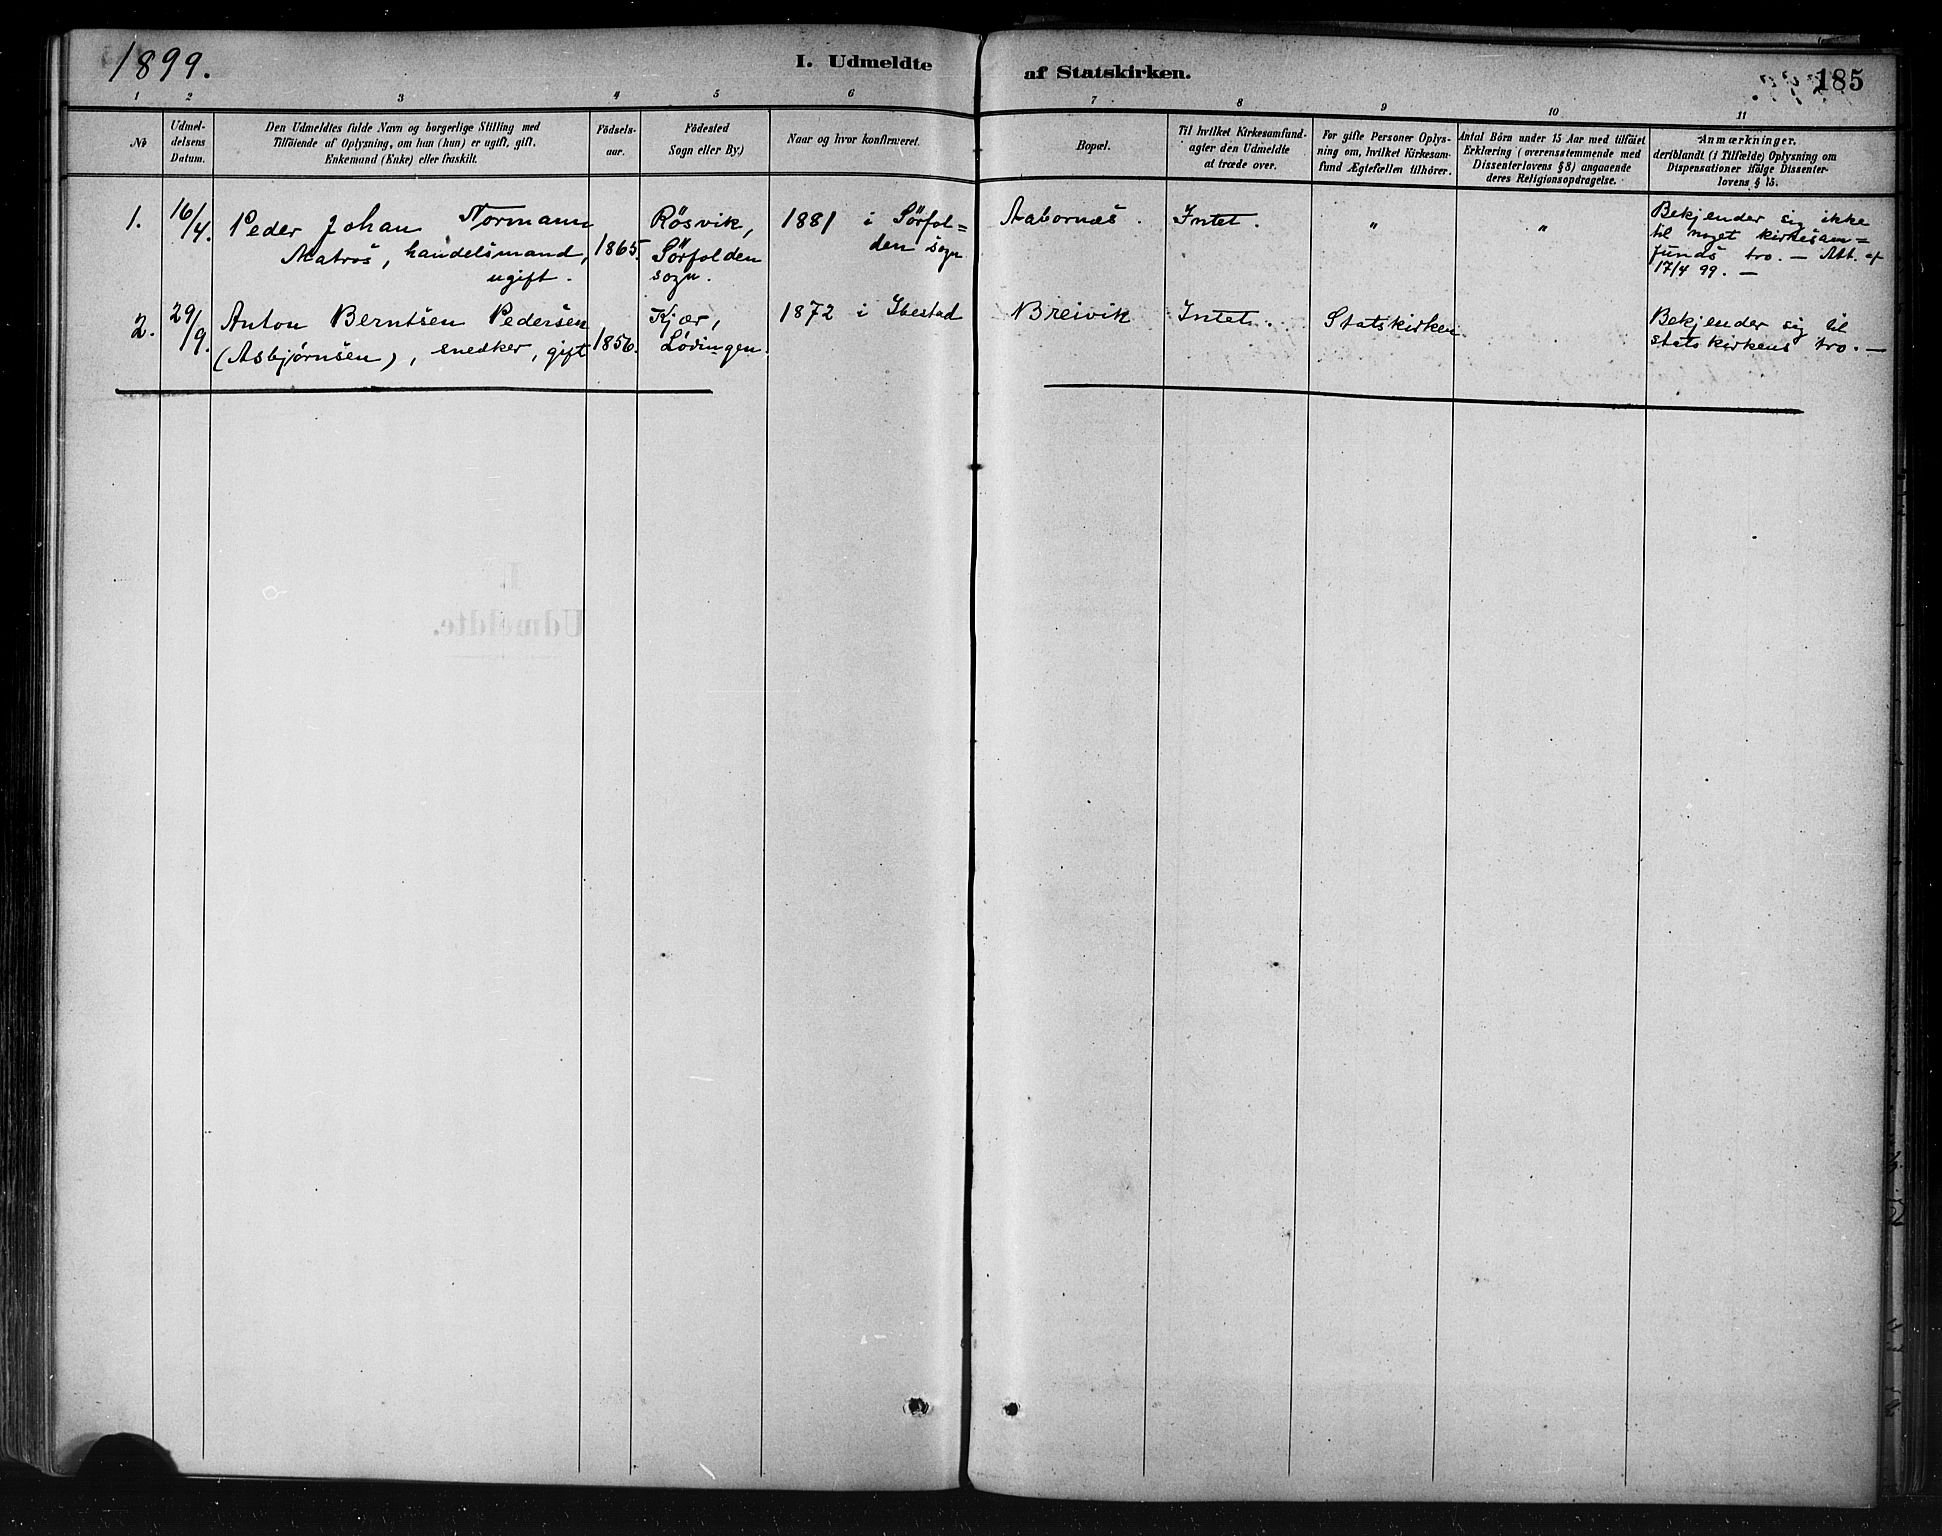 1899.
I. Udmeldte
af Statskirken.
185
1
2
3
4
5
6
7
8
9
10
11
No
Udmeldelsens Datum.
Den Udmeldtes fulde Navn og borgerlige Stilling med
Tilföiende af Oplysning, om han (hun) er ugift, gift,
Enkemand (Enke) eller fraskilt.
Födsels-
aar.
Födested
Sogn eller By.)
Naar og hvor konfirmeret.
Bopæl.
Til hvilket Kirkesamfund-
agter den Udmeldte
at træde over.
For gifte Personer Oplys-
ning om, hvilket Kirkesam-
fund Ægtefællen tilhörer.
Antal Börn under 15 Aar med tilföiet
Erklæring (overensstemmende med
Dissenterlovens § 8) angaaende
deres Religionsopdragelse.
Anmærkninger,
deriblandt (i Tilfælde) Oplysning om
Dispensationer ifölge Dissenter-
lovens § 15.
1.
16/4.
Peder Johan Normann
Matros, handelsmand,
ugift.
1865.
Rösvik,
Sörfolden
sogn.
1881 i Sörfol=
den sogn
Aabornæs.
Intet.
"
"
Bekjender sig ikke
til noget kirkesam=
funds tro. — Att. af
17/4 99. —
2.
29/9.
Anton Berntsen Pedersen
(Asbjørnsen), snedker, gift
1856.
Kjær,
Lödingen.
1872 i Ibestad
Breivik
Intet.
Statskirken
Bekjender sig til
statskirkens tro. —
I.
Udmeldte.